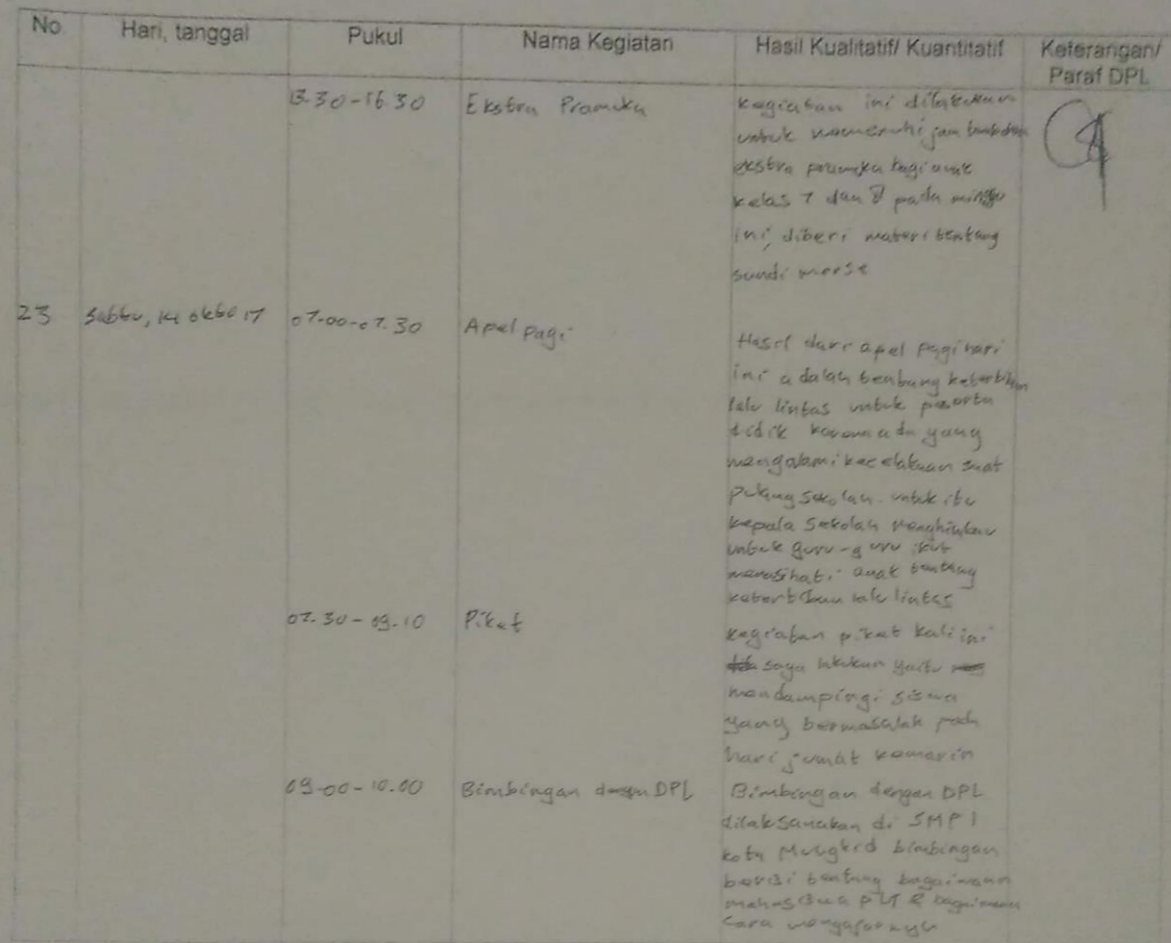 No. Hari, tanggal Pukul Nama Kegiatan Hasil Kualitatif/ Kuantitatif Keterangan/
Paraf DPL
13.30-16.30 Ekstra Pramuka kegiatan ini dilakukan
untuk memenuhi jam tambahan
ekstra pramuka bagi anak
kelas 7 dan 8 pada minggu
ini, diberi materi tentang
sandi morse
23 Sabtu, 14 okto 17 07.00-07.30 Apel pagi
Hasil dari apel pagi hari
ini adalah tentang ketertiban
lalu lintas untuk peserta
didik karena ada yang
mengalami kecelakaan saat
pulang sekolah. untuk itu
kepala sekolah menghimbau
untuk guru-guru ikut
menasihati anak tentang
ketertiban lalu lintas
07.30-09.10 Piket kegiatan piket kali ini
saya lakukan yaitu
mendampingi siswa
yang bermasalah pada
hari jumat kemarin
09-00-10.00 Bimbingan dengan DPL Bimbingan dengan DPL
dilaksanakan di SMP 1
kota Mungkid bimbingan
berisi tentang bagaimana
mahasiswa PLT & bagaimana
cara mengajarnya